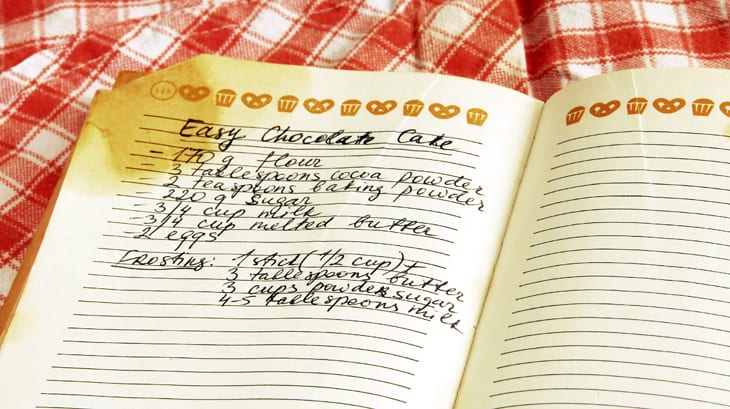 Easy Chocolate Cake
- 170 g flour
- 3 tablespoons cocoa powder
2 teaspoons baking powder
- 220 g sugar
- 3/4 cup milk
- 3/4 cup melted butter
- 2 eggs
Frosting: 1 stick (1/2 cup) +
3 tablespoons butter
3 cups powder sugar
4-5 tablespoons milk